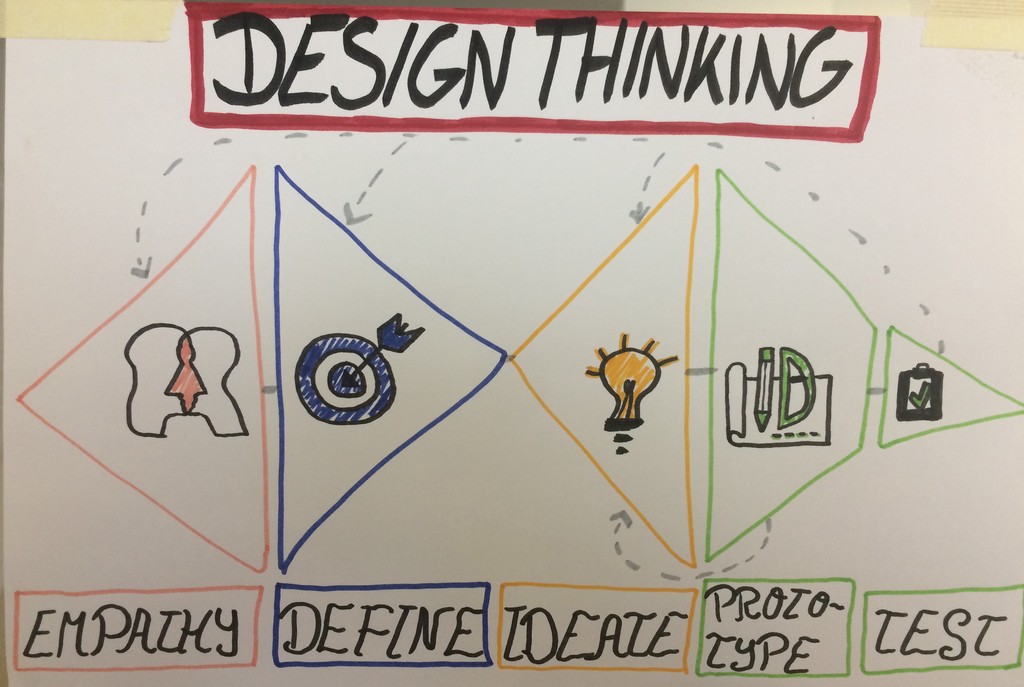 DESIGN THINKING
EMPATHY
DEFINE
IDEATE
PROTO-
TYPE
TEST